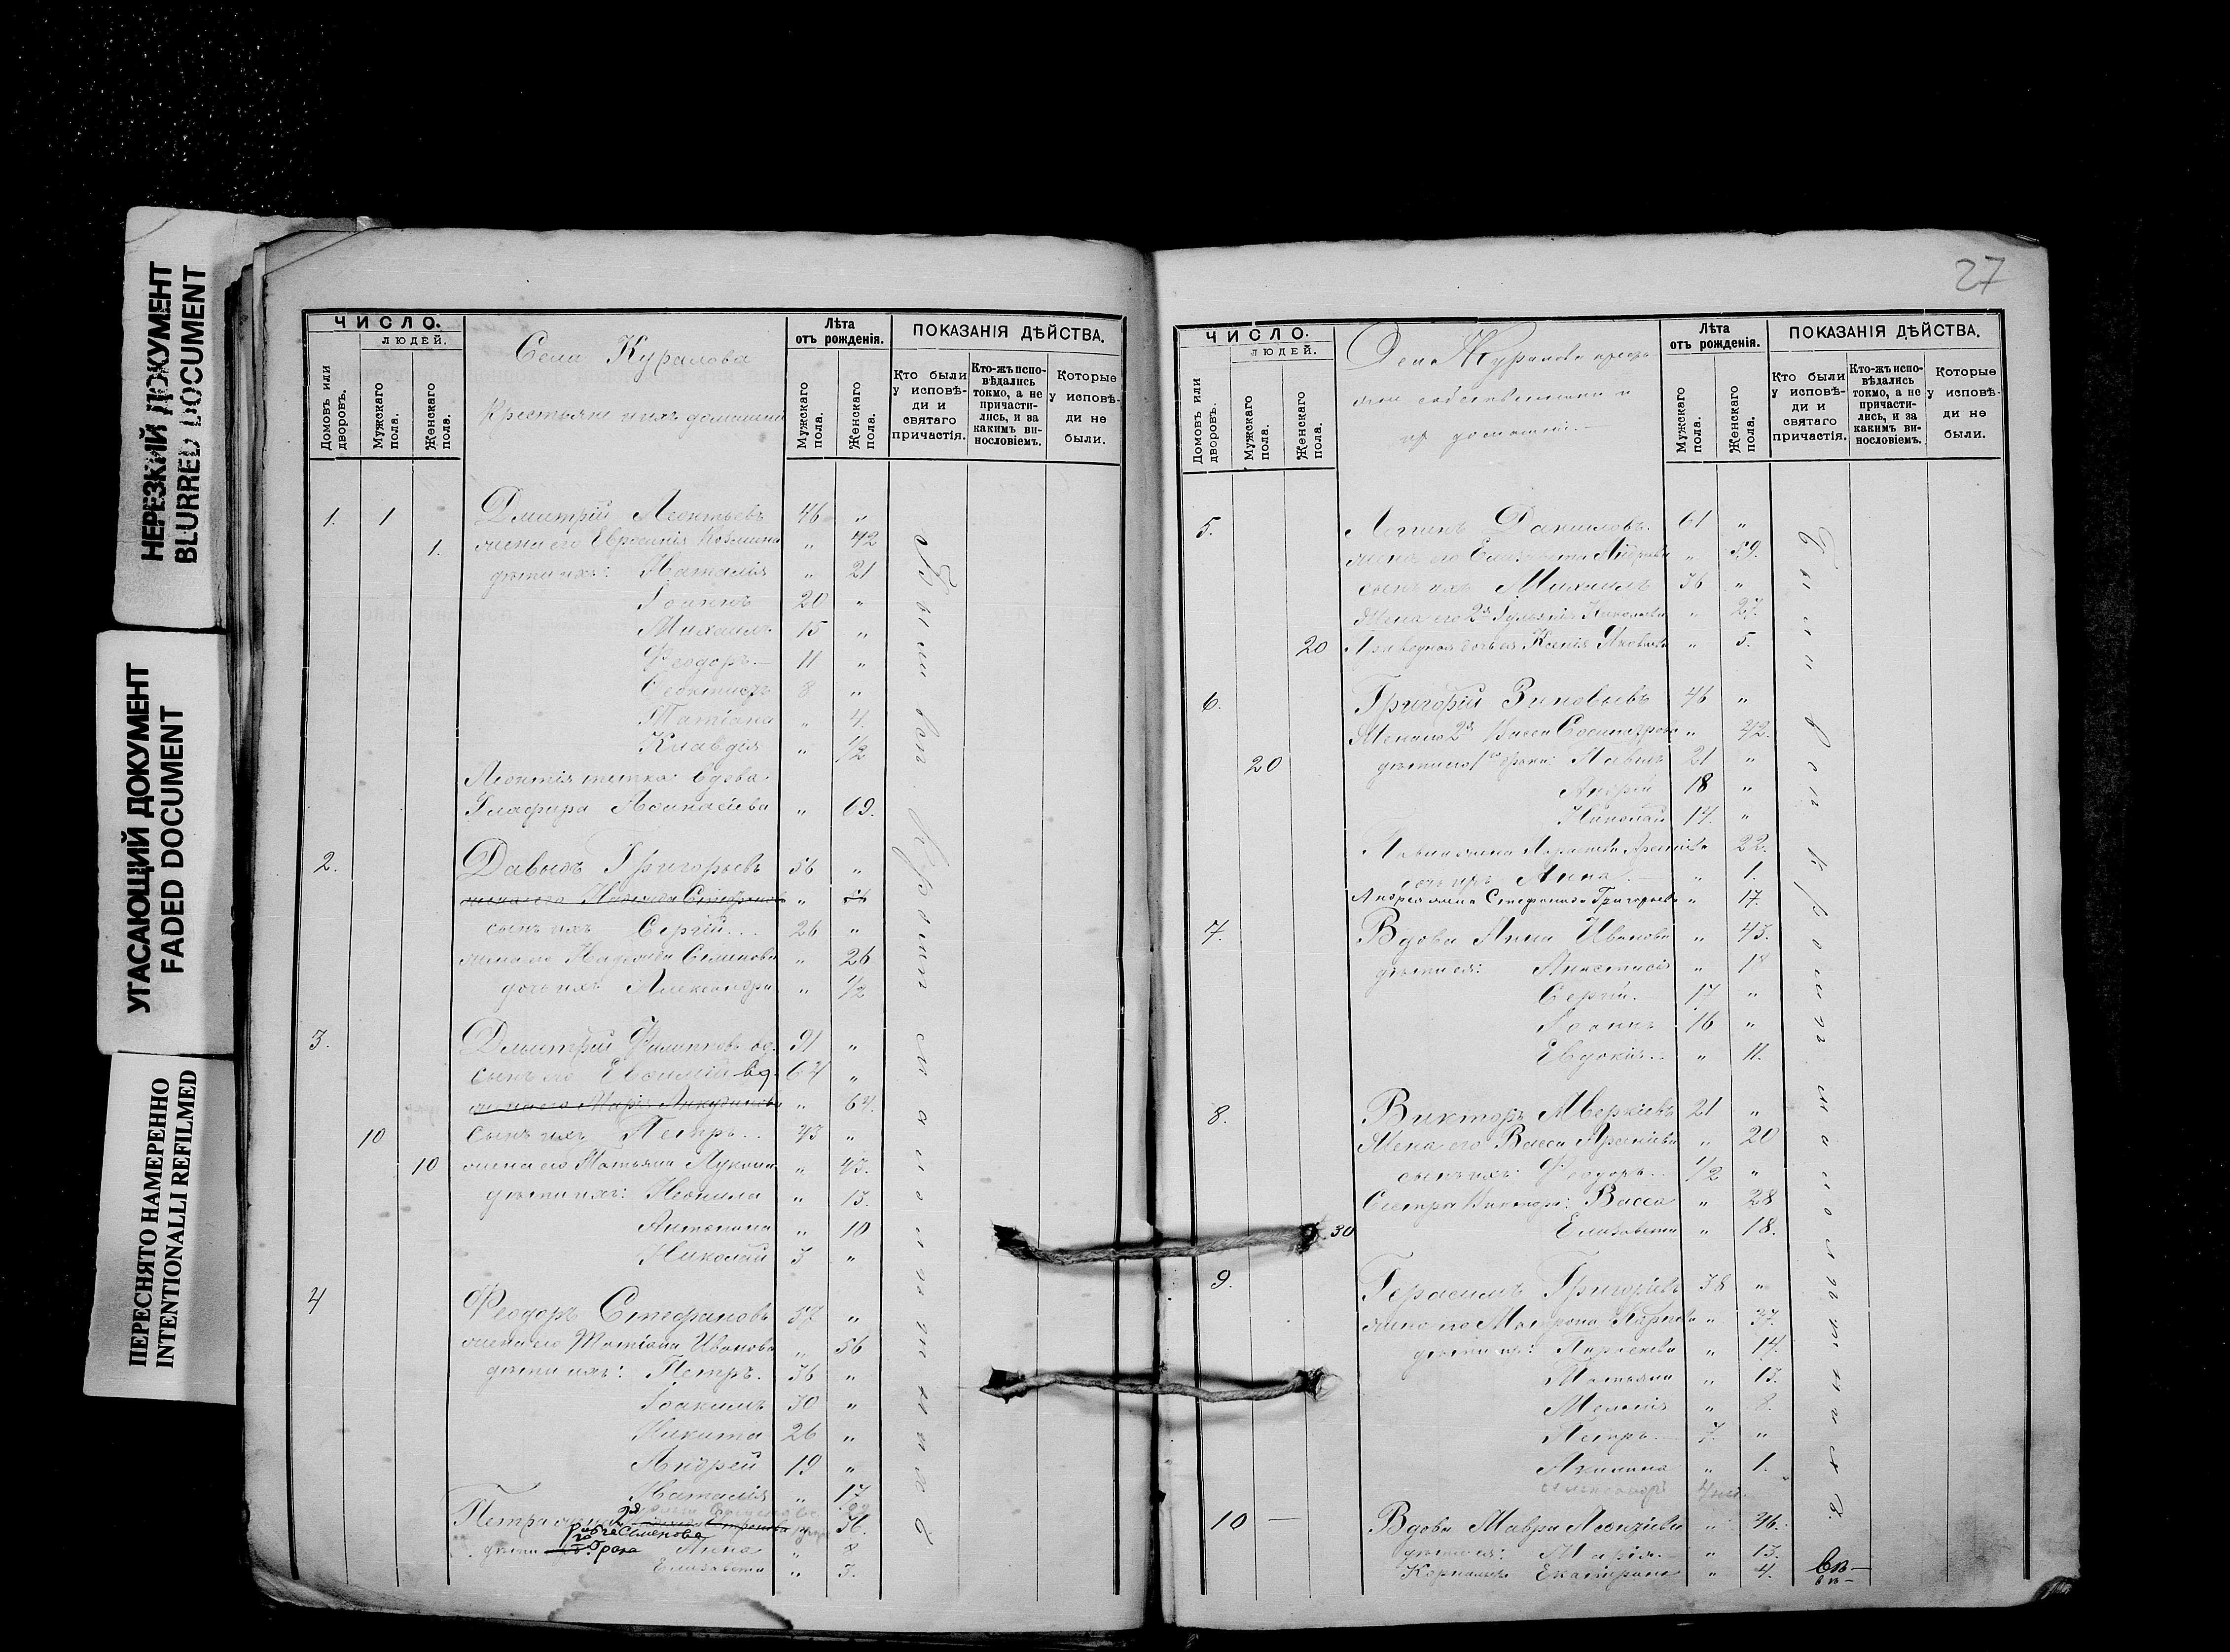 НЕРЕЗКИЙ ДОКУМЕНТ
BLURRED DOCUMENT
УГАСАЮЩИЙ ДОКУМЕНТ
FADED DOCUMENT
ПЕРЕСНЯТО НАМЕРЕННО
INTENTIONALLI REFILMED
ЧИСЛО.
ЛЮДЕЙ.
Домовъ или дворовъ.
Мужскаго пола.
Женскаго пола.
Села Куралова
Крестьяне и ихъ домашніи
Лѣта
отъ рожденія.
Мужскаго пола.
Женскаго пола.
ПОКАЗАНІЯ ДѢЙСТВА.
Кто были у исповѣди и святаго причастія.
Кто-жъ исповѣдались токмо, а не причастились, и за какимъ винословіемъ.
Которые у исповѣди не были.
1. 1 Дмитрій Леонтьевъ 46 „
1. жена его Евѳимія Козмина „ 42
дѣти ихъ: Наталія „ 21
Іоаннъ 20 „
Михаилъ 15 „
Ѳеодоръ 11 „
Ѳеоктистъ 8 „
Татіана „ 4.
Клавдія „ 1/2
Леонтія тетка вдова
Глафира Аѳанасіева „ 69.
2. Давыдъ Григорьевъ 56 „
жена его Надежда „
сынъ ихъ Сергій 26 „
жена его Надежда Семенова „ 26
дочь ихъ Александра „ 1/2
3. Дмитрій Филиповъ вд. 91 „
сынъ его Евѳимій вд. 64 „
жена его Марія „ 64.
10 Сынъ ихъ Петръ 43 „
10 жена его Татьяна Лукина „ 43.
дѣти ихъ: Неонила „ 13.
Антонина „ 10
Николай 3 „
4 Ѳеодоръ Стефановъ 57 „
жена его Татіана Иванова „ 56
дѣти ихъ: Петръ. 36 „
Іоакимъ 30 „
Никита 26 „
Андрей 19 „
Наталія „ 17
Петра жена 2я
Семенова
дѣти Анна „ 8
Елизавета „ 3.
Были вси кроми малолѣтнихъ
27
ЧИСЛО.
ЛЮДЕЙ.
Домовъ или дворовъ.
Мужскаго пола.
Женскаго пола.
Села Куралова
собственники и
их домашніи.
Лѣта
отъ рожденія.
Мужскаго пола.
Женскаго пола.
ПОКАЗАНІЯ ДѢЙСТВА.
Кто были у исповѣди и святаго причастія.
Кто-жъ исповѣдались токмо, а не причастились, и за какимъ винословіемъ.
Которые у исповѣди не были.
5. Логинъ Даниловъ. 61 „
жена его Елизавета Андреева „ 59.
сынъ ихъ Михаилъ 36 „
Жена его 2я Іуліанія „ 27.
20 Приводная дочь ея Ксенія Яковлева „ 5.
6. Григорій Зиновьевъ 46 „
Жена его 2я Васса „ 42.
20 дѣти его 1го брака: Павелъ 21 „
Андрей 18 „
Николай 14. „
Павла жена Параскева 22.
дочь ихъ Анна „ 1.
Андрея жена Стефанида Григорьева „ 17.
7. Вдова Анна Иванова „ 43.
дѣти ея: Анастасія „ 18
Сергій. 17 „
Іоаннъ 16 „
Евдокія „ 11.
8. Викторъ Аверкіевъ 21 „
Жена его Васса „ 20
сынъ ихъ: Ѳеодоръ 1/2 „
Сестра Виктора: Васса „ 28
30 Елизавета „ 18.
9. Герасимъ Григорьевъ 38 „
жена его Матрона „ 37.
дѣти их: Параскева „ 14.
Татьяна „ 13.
Меланія „ 8.
Петръ 7. „
Акилина „ 1.
Александръ
10 Вдова Мавра Леонтіева „ 46.
дѣти ея: Марія „ 13.
Екатерина „ 4.
Были вси кроми малолѣтнихъ